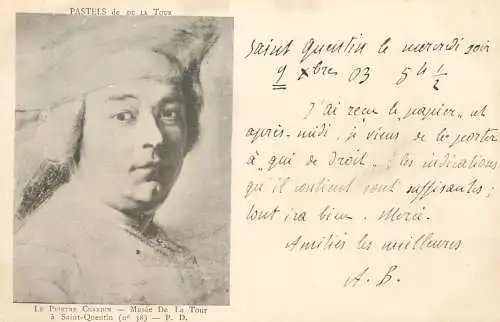 PASTELS de DE LA TOUR
LE PEINTRE CHARDIN — MUSÉE DE LA TOUR
à SAINT-QUENTIN (nº 38) — P. D.
Saint Quentin le mercredi soir
9 xbres 03 5h 1/2
J'ai reçu le "papier" cet
après-midi, je viens de le porter
à "qui de droit"; les indications
qu'il contient sont suffisantes;
tout ira bien. Merci.
Amitiés les meilleures
A. B.